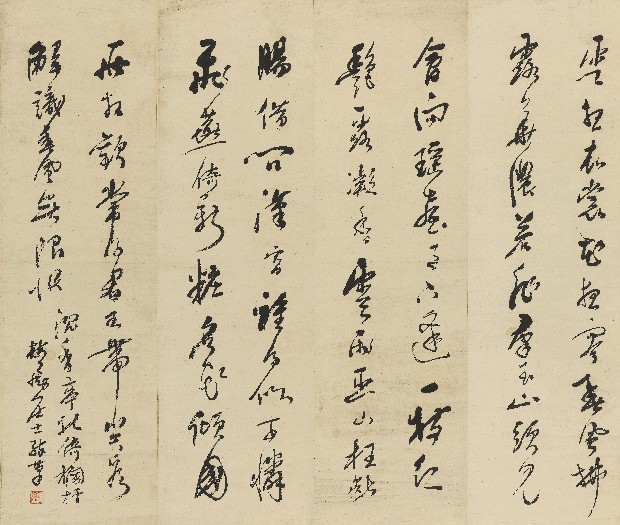 雲想衣裳花想容春風拂
露華濃若非羣玉山頭見
會向瑤臺月下逢一枝紅
艷露凝香雲雨巫山枉斷
腸借問漢宮誰得似可憐
飛燕倚新粧名花傾國
兩相歡常得君王帶笑看
解識春風無限恨沉香亭北倚欄杆
居士